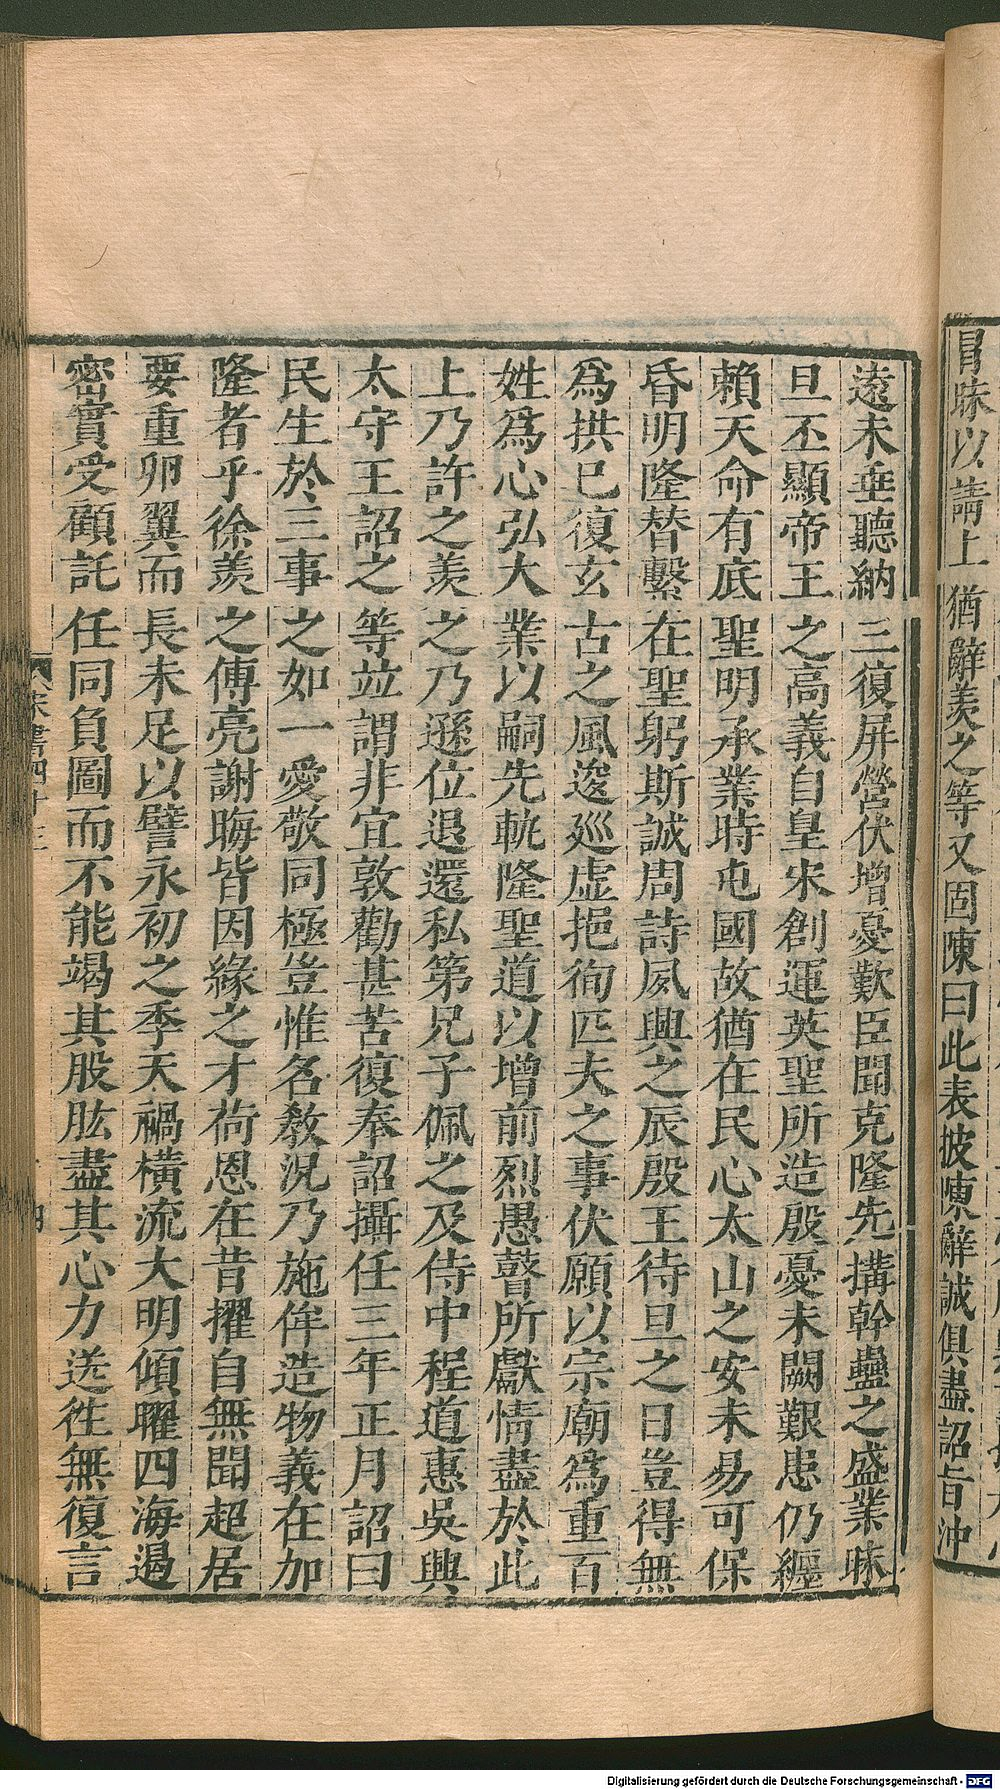 冒昧以請上猶辭羨之等又固陳曰此表披陳辭誠俱盡詔旨沖
遠未垂聽納三復屏營伏增憂歎臣聞克隆先搆幹蠱之盛業昧
旦丕顯帝王之高義自皇宋創運英聖所造殷憂未闕艱患仍纏
賴天命有底聖明承業時屯國故猶在民心太山之安未易可保
昏明隆替繫在聖躬斯誠周詩夙興之辰殷王待旦之日豈得無
爲拱巳復玄古之風逡廵虛挹徇匹夫之事伏願以宗廟爲重百
姓爲心弘大業以嗣先軌隆聖道以增前烈愚瞽所獻情盡於此
上乃許之羨之乃遜位退還私第兄子佩之及侍中程道惠吳興
太守王詔之等並謂非宜敦勸甚苦復奉詔攝任三年正月詔曰
民生於三事之如一愛敬同極豈惟名教況乃施侔造物義在加
隆者乎徐羨之傅亮謝晦皆因緣之才荷恩在昔擢自無聞超居
要重卵翼而長未足以譬永初之季天禍橫流大明傾曜四海遏
密實受顧託任同負圖而不能竭其股肱盡其心力送徃無復言
宋書四十三
Digitalisierung gefördert durch die Deutsche Forschungsgemeinschaft - DFG